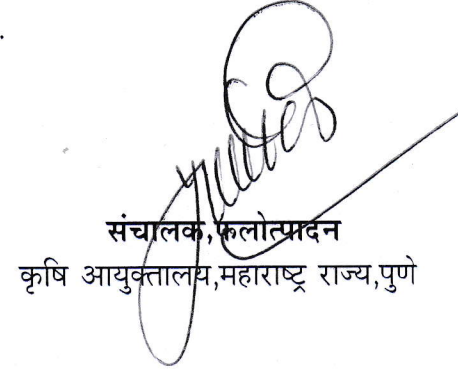 संचालक,फलोत्पादन
कृषि आयुक्तालय,महाराष्ट्र राज्य,पुणे